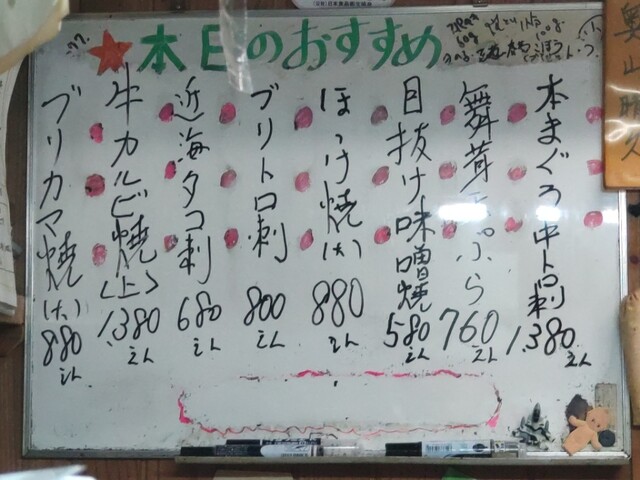 本日のおすすめ
本まぐろ中トロ刺 1,380えん
舞茸天ぷら 760えん
目抜け味噌焼 580えん
ほっけ焼(大) 880えん
ブリトロ刺 800えん
近海タコ刺 680えん
牛カルビ焼(上) 1,380えん
ブリカマ焼(大) 880えん
奥山晴久